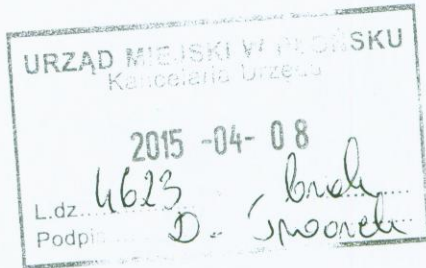 URZĄD MIEJSKI W PŁOŃSKU
Kancelaria Urzędu
2015 -04- 08
L.dz. 4623 brak
Podpi D.